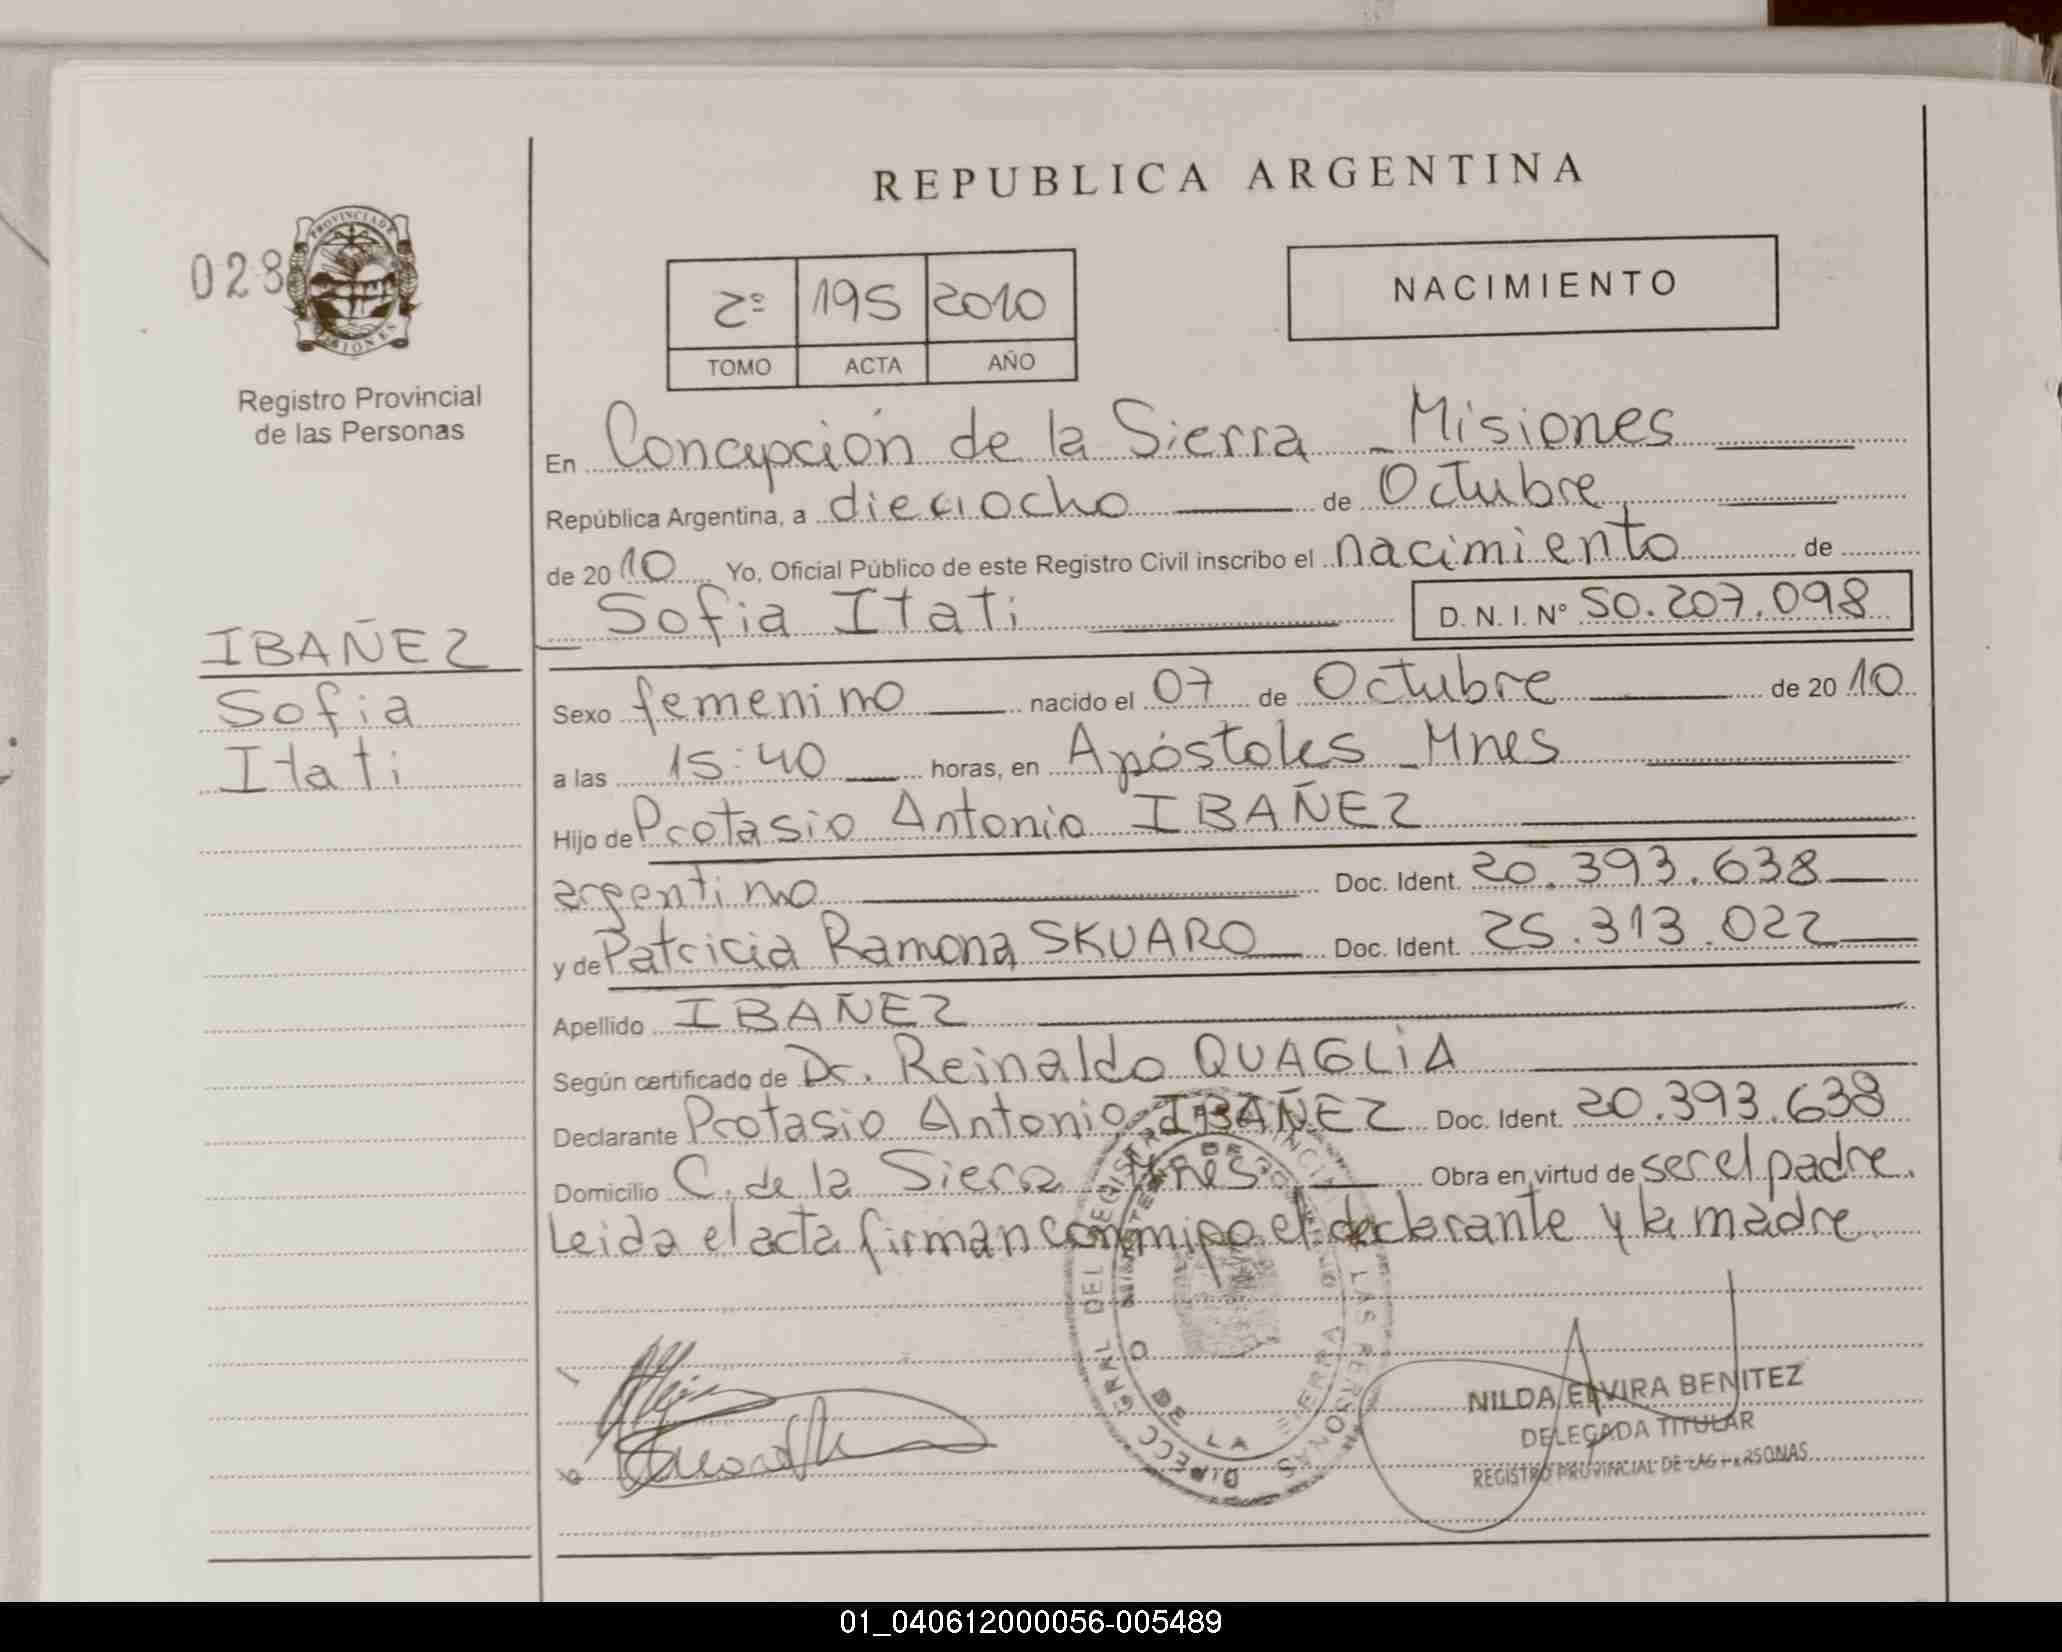 REPUBLICA ARGENTINA
028
PROVINCIA DE MISIONES
Registro Provincial
de las Personas
2º 195 2010
TOMO ACTA AÑO
NACIMIENTO
En Concepción de la Sierra - Misiones
República Argentina, a dieciocho de Octubre
de 2010 Yo, Oficial Público de este Registro Civil inscribo el nacimiento de
Sofia Itati D. N. I. Nº 50.207.098
IBAÑEZ
Sofia
Itati
Sexo femenino nacido el 07 de Octubre de 2010
a las 15:40 horas, en Apóstoles - Mnes
Hijo de Protasio Antonio IBAÑEZ
argentino Doc. Ident. 20.393.638
y de Patricia Ramona SKUARO Doc. Ident. 25.313.022
Apellido IBAÑEZ
Según certificado de Dr. Reinaldo QUAGLIA
Declarante Protasio Antonio IBAÑEZ Doc. Ident. 20.393.638
Domicilio C. de la Sierra - Mnes Obra en virtud de ser el padre.
Leida el acta firman conmigo el declarante y la madre
NILDA ELVIRA BENITEZ
DELEGADA TITULAR
REGISTRO PROVINCIAL DE LAS PERSONAS
01_040612000056-005489